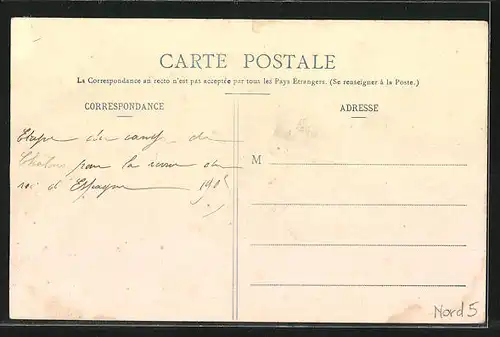 CARTE POSTALE
La Correspondance au recto n'est pas acceptée par tous les Pays Etrangers. (Se renseigner à la Poste.)
CORRESPONDANCE
ADRESSE
Etape du camp de
Chalons pour la revue du
roi d'Espagne 1905
M
Nord 5